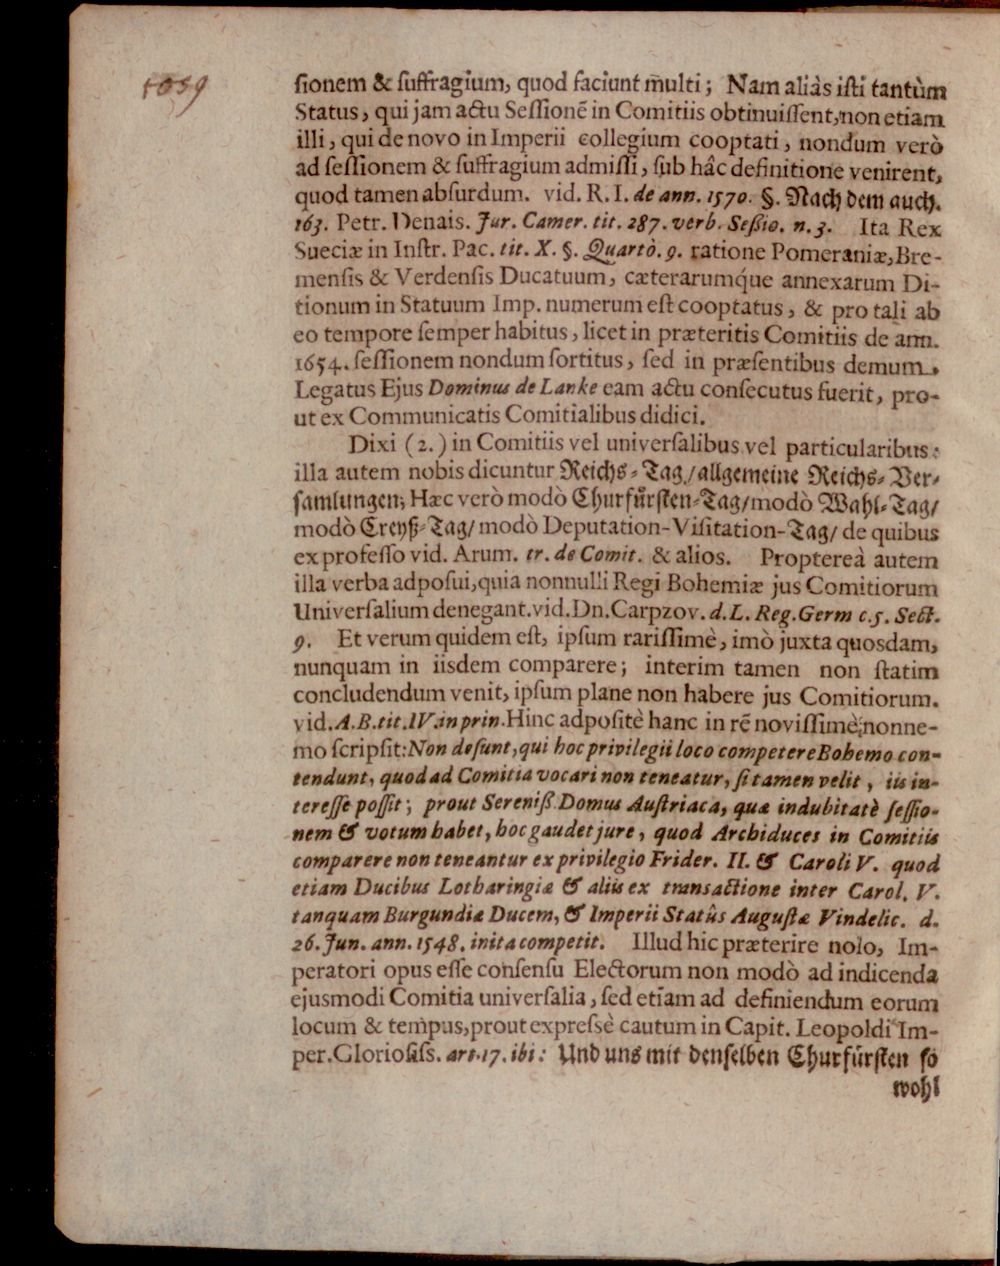 1039
sionem & suffragium, quod faciunt multi; Nam aliàs isti tantùm
Status, qui jam actu Sessionē in Comitiis obtinuissent, non etiam
illi, qui de novo in Imperii collegium cooptati, nondum verò
ad sessionem & suffragium admissi, sub hâc definitione venirent,
quod tamen absurdum. vid. R. I. de ann. 1570. §. Nach dem auch.
163. Petr. Denais. Jur. Camer. tit. 287. verb. Seßio. n. 3. Ita Rex
Sueciæ in Instr. Pac. tit. X. §. Quartò. 9. ratione Pomeraniæ, Bre-
mensis & Verdensis Ducatuum, cæterarumq́ue annexarum Di-
tionum in Statuum Imp. numerum est cooptatus, & pro tali ab
eo tempore semper habitus, licet in præteritis Comitiis de ann.
1654. sessionem nondum sortitus, sed in præsentibus demum,
Legatus Ejus Dominus de Lanke eam actu consecutus fuerit, pro-
ut ex Communicatis Comitialibus didici.
Dixi (2.) in Comitiis vel universalibus vel particularibus:
illa autem nobis dicuntur Reichs-Tag/allgemeine Reichs-Ver-
samlungen; Hæc verò modò Churfürsten-Tag/modò Wahl-Tag/
modò Creyß-Tag/ modò Deputation-Visitation-Tag/ de quibus
ex professo vid. Arum. tr. de Comit. & alios. Propterea autem
illa verba adposui, quia nonnulli Regi Bohemiæ jus Comitiorum
Universalium denegant. vid. Dn. Carpzov. d. L. Reg. Germ c. 5. Sect.
9. Et verum quidem est, ipsum rarissimè, imò juxta quosdam,
nunquam in iisdem comparere; interim tamen non statim
concludendum venit, ipsum plane non habere jus Comitiorum.
vid. A. B. tit. IV. in prin. Hinc adpositè hanc in rē novissimè, nonne-
mo scripsit: Non desunt, qui hoc privilegii loco competere Bohemo con-
tendunt, quod ad Comitia vocari non teneatur, si tamen velit, iis in-
teresse possit; prout Sereniß. Domus Austriaca, quæ indubitatè sessio-
nem & votum habet, hoc gaudet jure, quod Archiduces in Comitiis
comparere non teneantur ex privilegio Frider. II. & Caroli V. quod
etiam Ducibus Lotharingiæ & aliis ex transactione inter Carol. V.
tanquam Burgundiæ Ducem, & Imperii Statûs Augustæ Vindelic. d.
26. Jun. ann. 1548. inita competit. Illud hic præterire nolo, Im-
peratori opus esse consensu Electorum non modò ad indicenda
ejusmodi Comitia universalia, sed etiam ad definiendum eorum
locum & tempus, prout expressè cautum in Capit. Leopoldi Im-
per. Gloriosiss. art. 17. ibi: Und uns mit denselben Churfürsten so
wohl